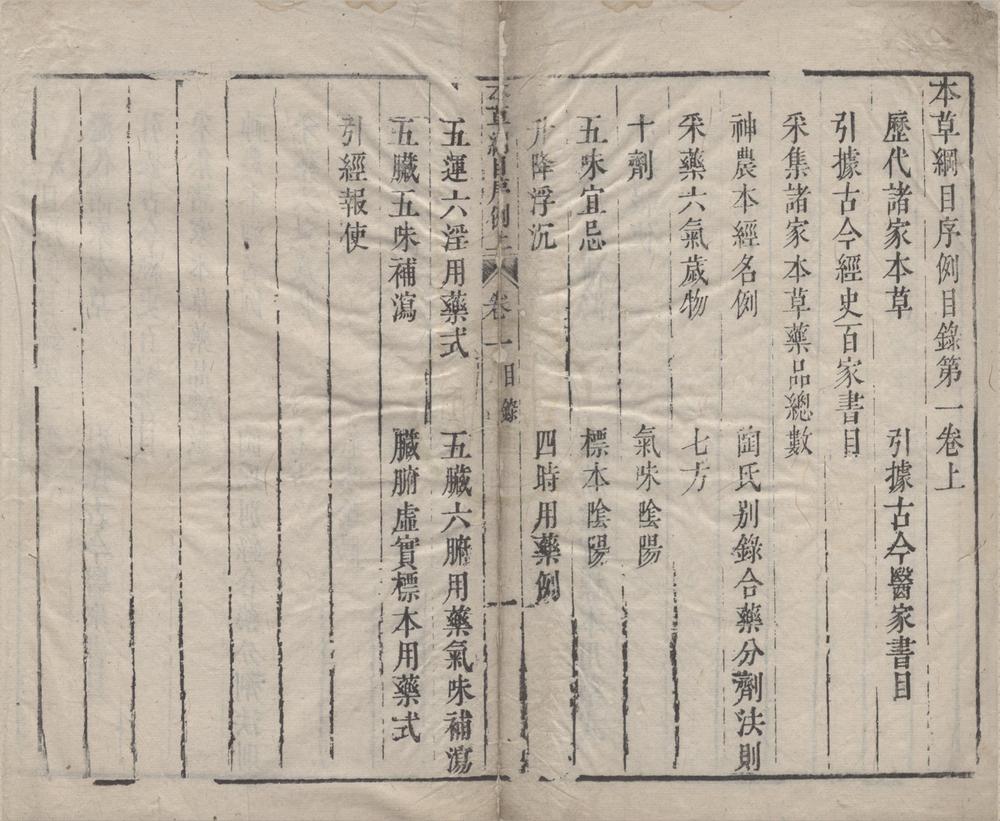 本草綱目序例目錄第一卷上
歷代諸家本草　引據古今醫家書目
引據古今經史百家書目
采集諸家本草藥品總數
神農本經名例　陶氏別錄合藥分劑法則
采藥六氣歲物　七方
十劑　氣味陰陽
五味宜忌　標本陰陽
升降浮沉　四時用藥例
本草綱目序例上　卷一　目錄　一
五運六淫用藥式　五臟六腑用藥氣味補瀉
五臟五味補瀉　臟腑虛實標本用藥式
引經報使